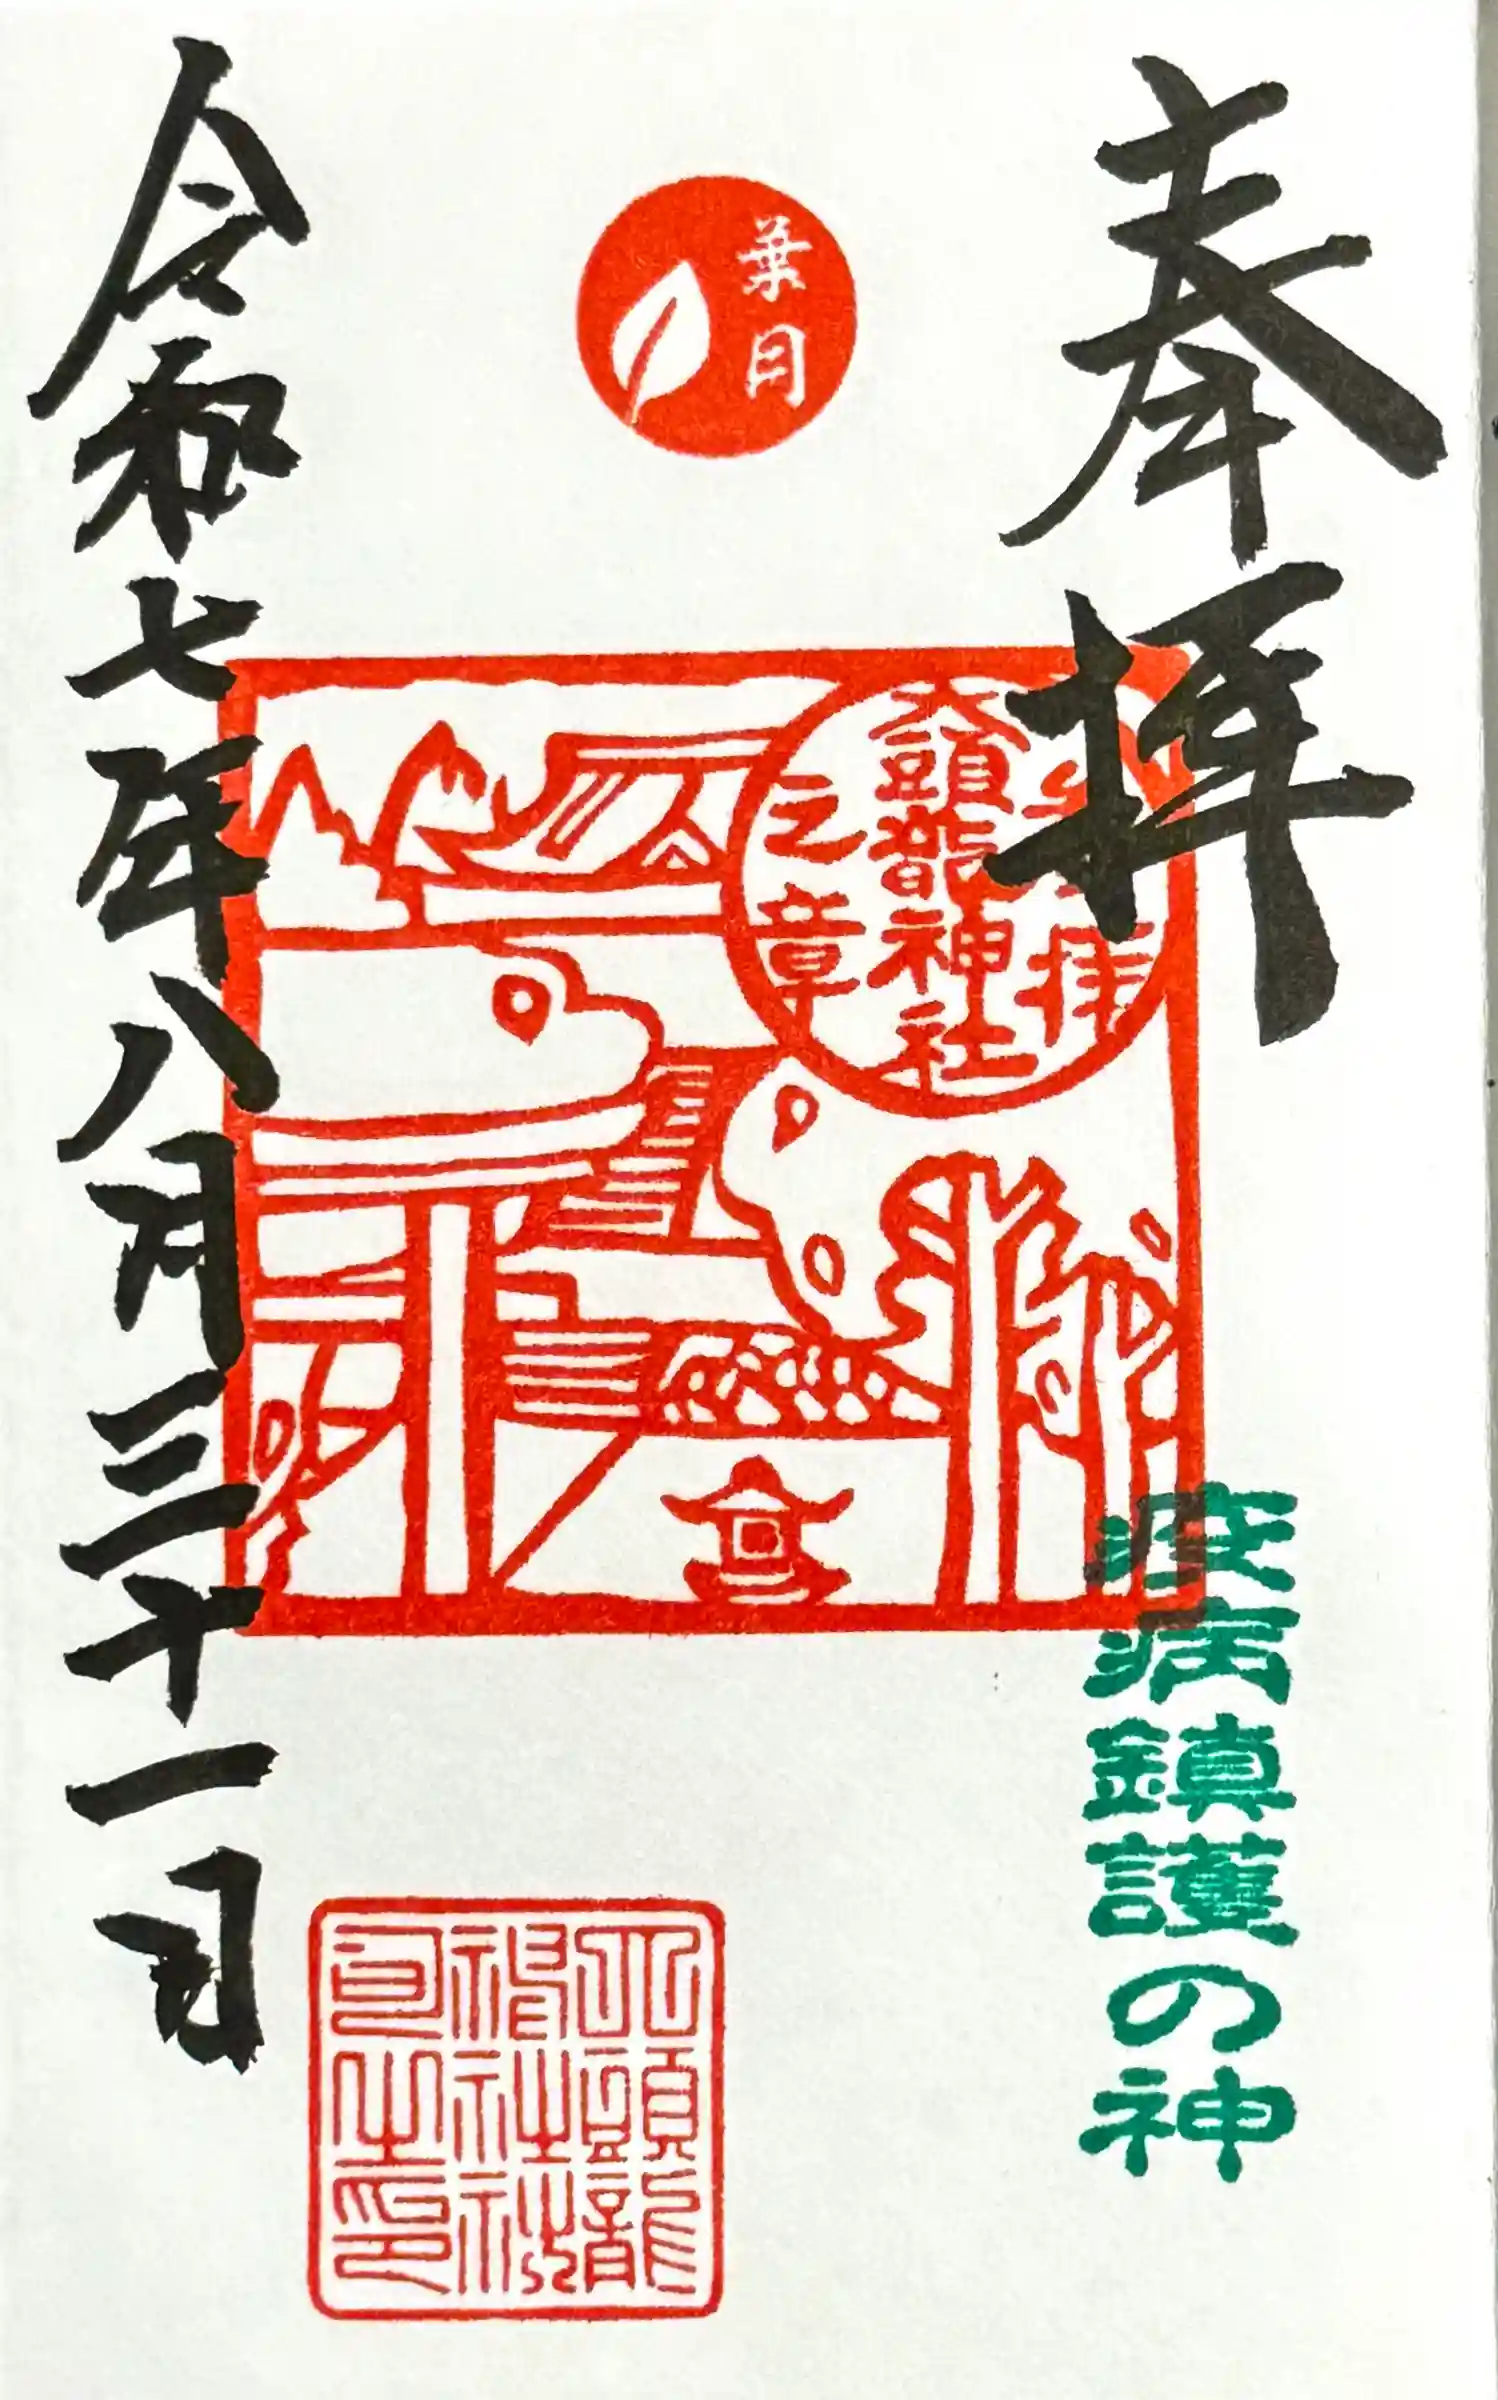 奉拝
葉月
参拝
大頭龍神社
之章
疫病鎮護の神
大頭龍
神社社
司之印
令和七年八月三十一日